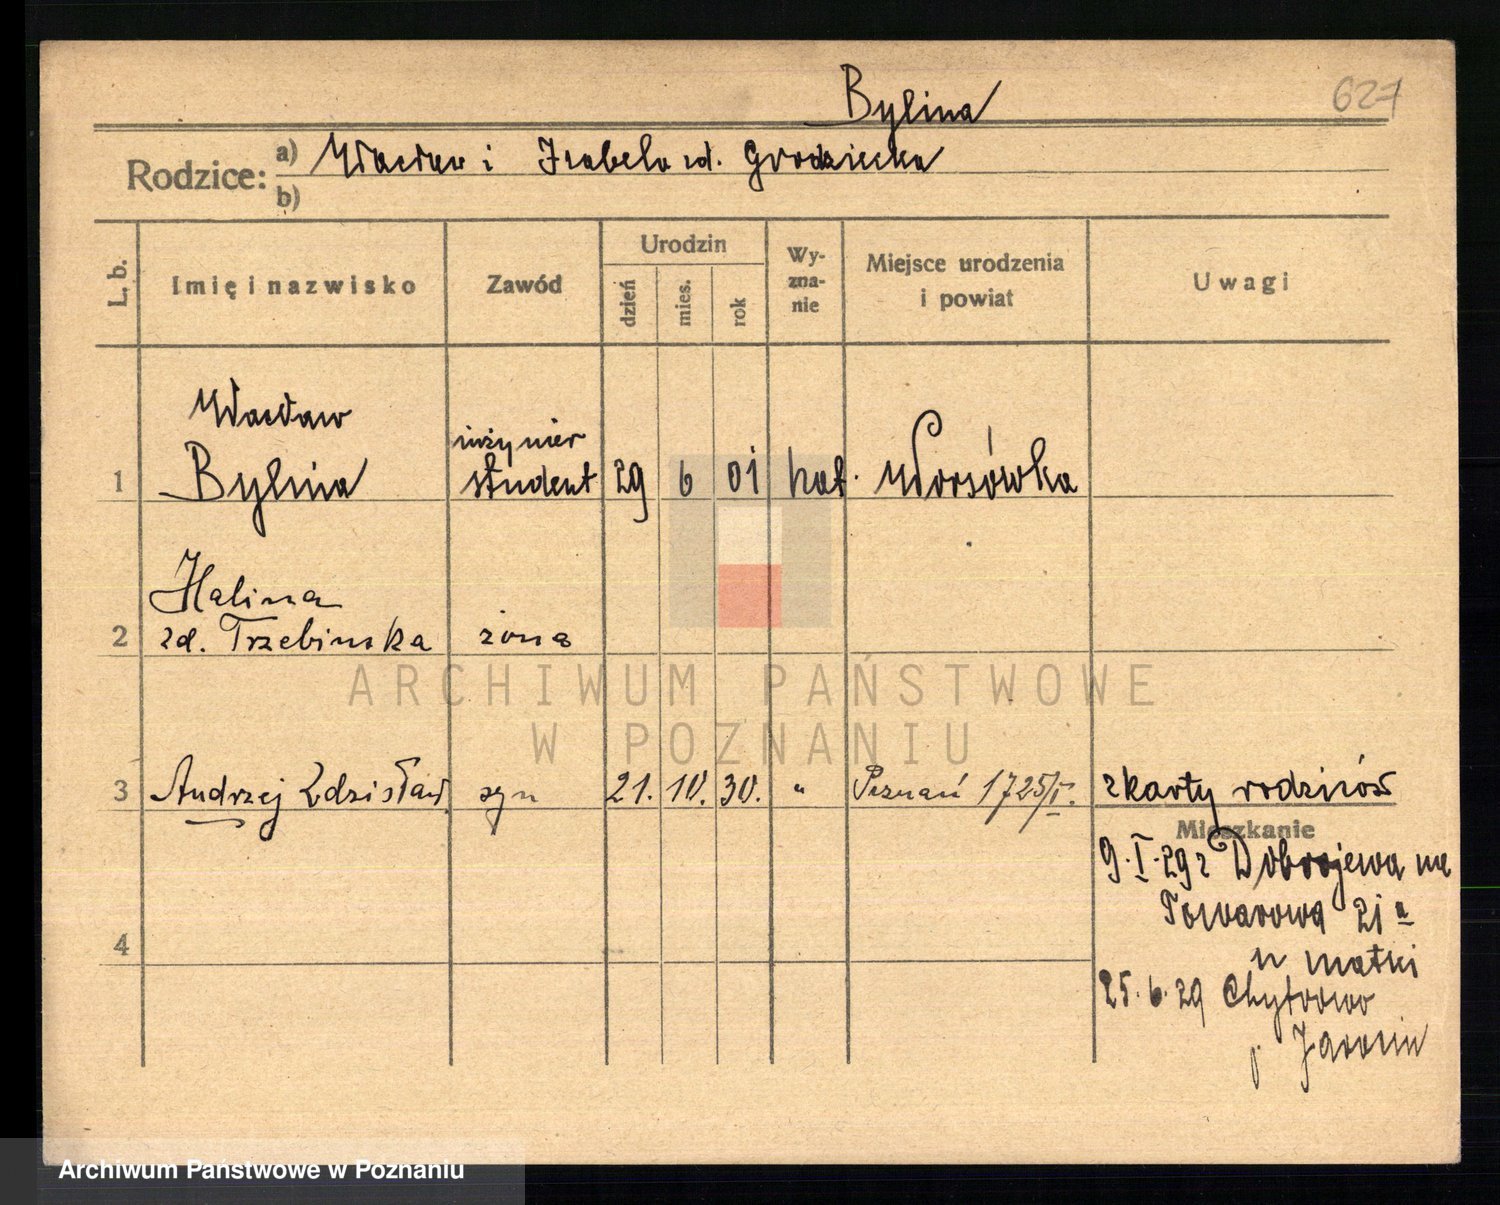 Bylina
627
Rodzice: a) Wacław i Izabela zd. Grodziecka
b)
L. b.
Imię i nazwisko
Zawód
Urodzin
dzień
mies.
rok
Wy-
zna-
nie
Miejsce urodzenia
i powiat
Uwagi
Wacław
inżynier
1 Bylina student 29 6 01 kat. Worsówka
Halina
2 zd. Trzebinska żona
3 Andrzej Zdzisław syn 21. 10. 30. " Poznań 1725/V. z karty rodziców
Mieszkanie
9.I.29 z Dobrojewa na
Towarowa 21 a
4
u matki
25.6.29 Chytrowo
p. Jarocin
ARCHIWUM PAŃSTWOWE
W POZNANIU
Archiwum Państwowe w Poznaniu